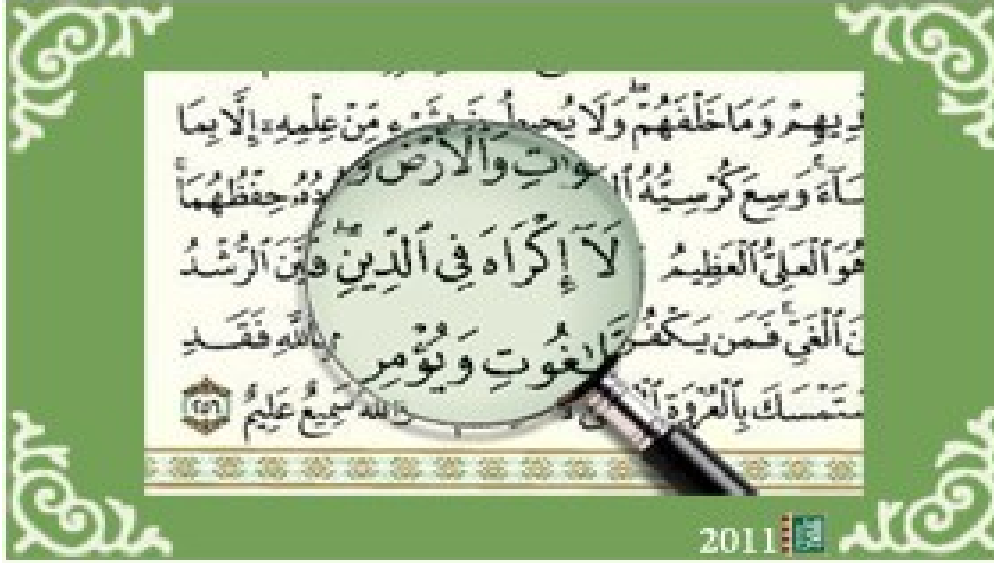 ديهم وما خلفهم ولا يحيطُ بشيء من علمه إلا بما
وسع كرسيه وات والأرض حفظهما
هو العلي العظيم لَا إِكْرَاهَ فِي الدِّينِ الرشد
الغي فمن يكفر غوت ويؤمن بالله فقد
ستمسك بالعروة الله سميع عليم ٢٥٦
2011